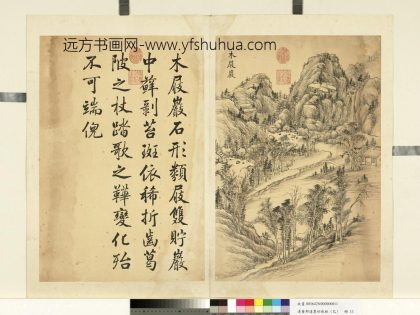 远方书画网-www.yfshuhua.com
木屐巖
木屐巖石形類屐雙貯巖
中蘚剥苔斑依稀折齒葛
陂之杖踏歌之鞾變化殆
不可端倪